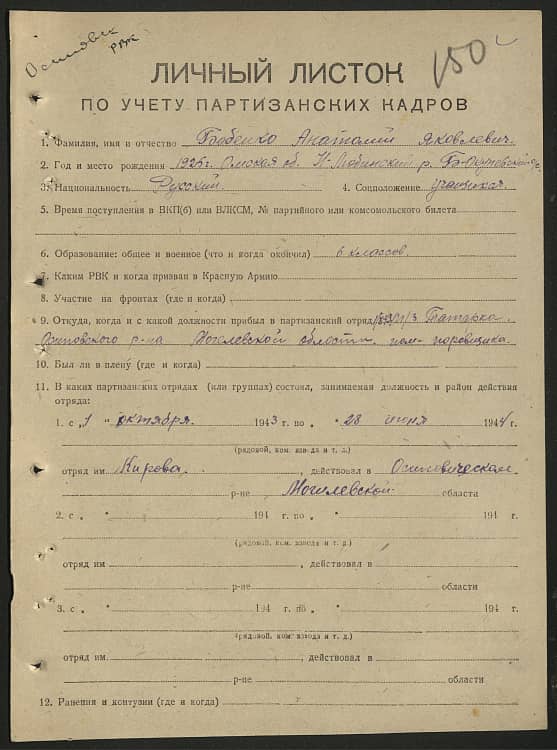 РВК
150
ЛИЧНЫЙ ЛИСТОК
ПО УЧЕТУ ПАРТИЗАНСКИХ КАДРОВ
1. Фамилия, имя и отчество Бабенко Анатолий Яковлевич.
2. Год и место рождения 1926 г. Омская об. Н-Любинский р.
3. Национальность Русский. 4. Соцположение учащийся.
5. Время поступления в ВКП(б) или ВЛКСМ, № партийного или комсомольского билета
6. Образование: общее и военное (что и когда окончил) 6 классов.
7. Каким РВК и когда призван в Красную Армию
8. Участие на фронтах (где и когда)
9. Откуда, когда и с какой должности прибыл в партизанский отряд Татарка.
Осиповского р-на Могилевской области. пом.
10. Был ли в плену (где и когда)
11. В каких партизанских отрядах (или группах) состоял, занимаемая должность и район действия
отряда:
1. с „1 " октября. 1943 г. по „ 28 июня 1944 г.
(рядовой, ком. взвода и т. д.)
отряд им Кирова. , действовал в Осиповическом
р-не Могилевской области
2. с „ " 194 г. по „ " 194 г.
(рядовой, ком. взвода и т. д.)
отряд им , действовал в
р-не области
3. с „ " 194 г. по „ " 194 г.
(рядовой, ком. взвода и т. д.)
отряд им , действовал в
р-не области
12. Ранения и контузии (где и когда)